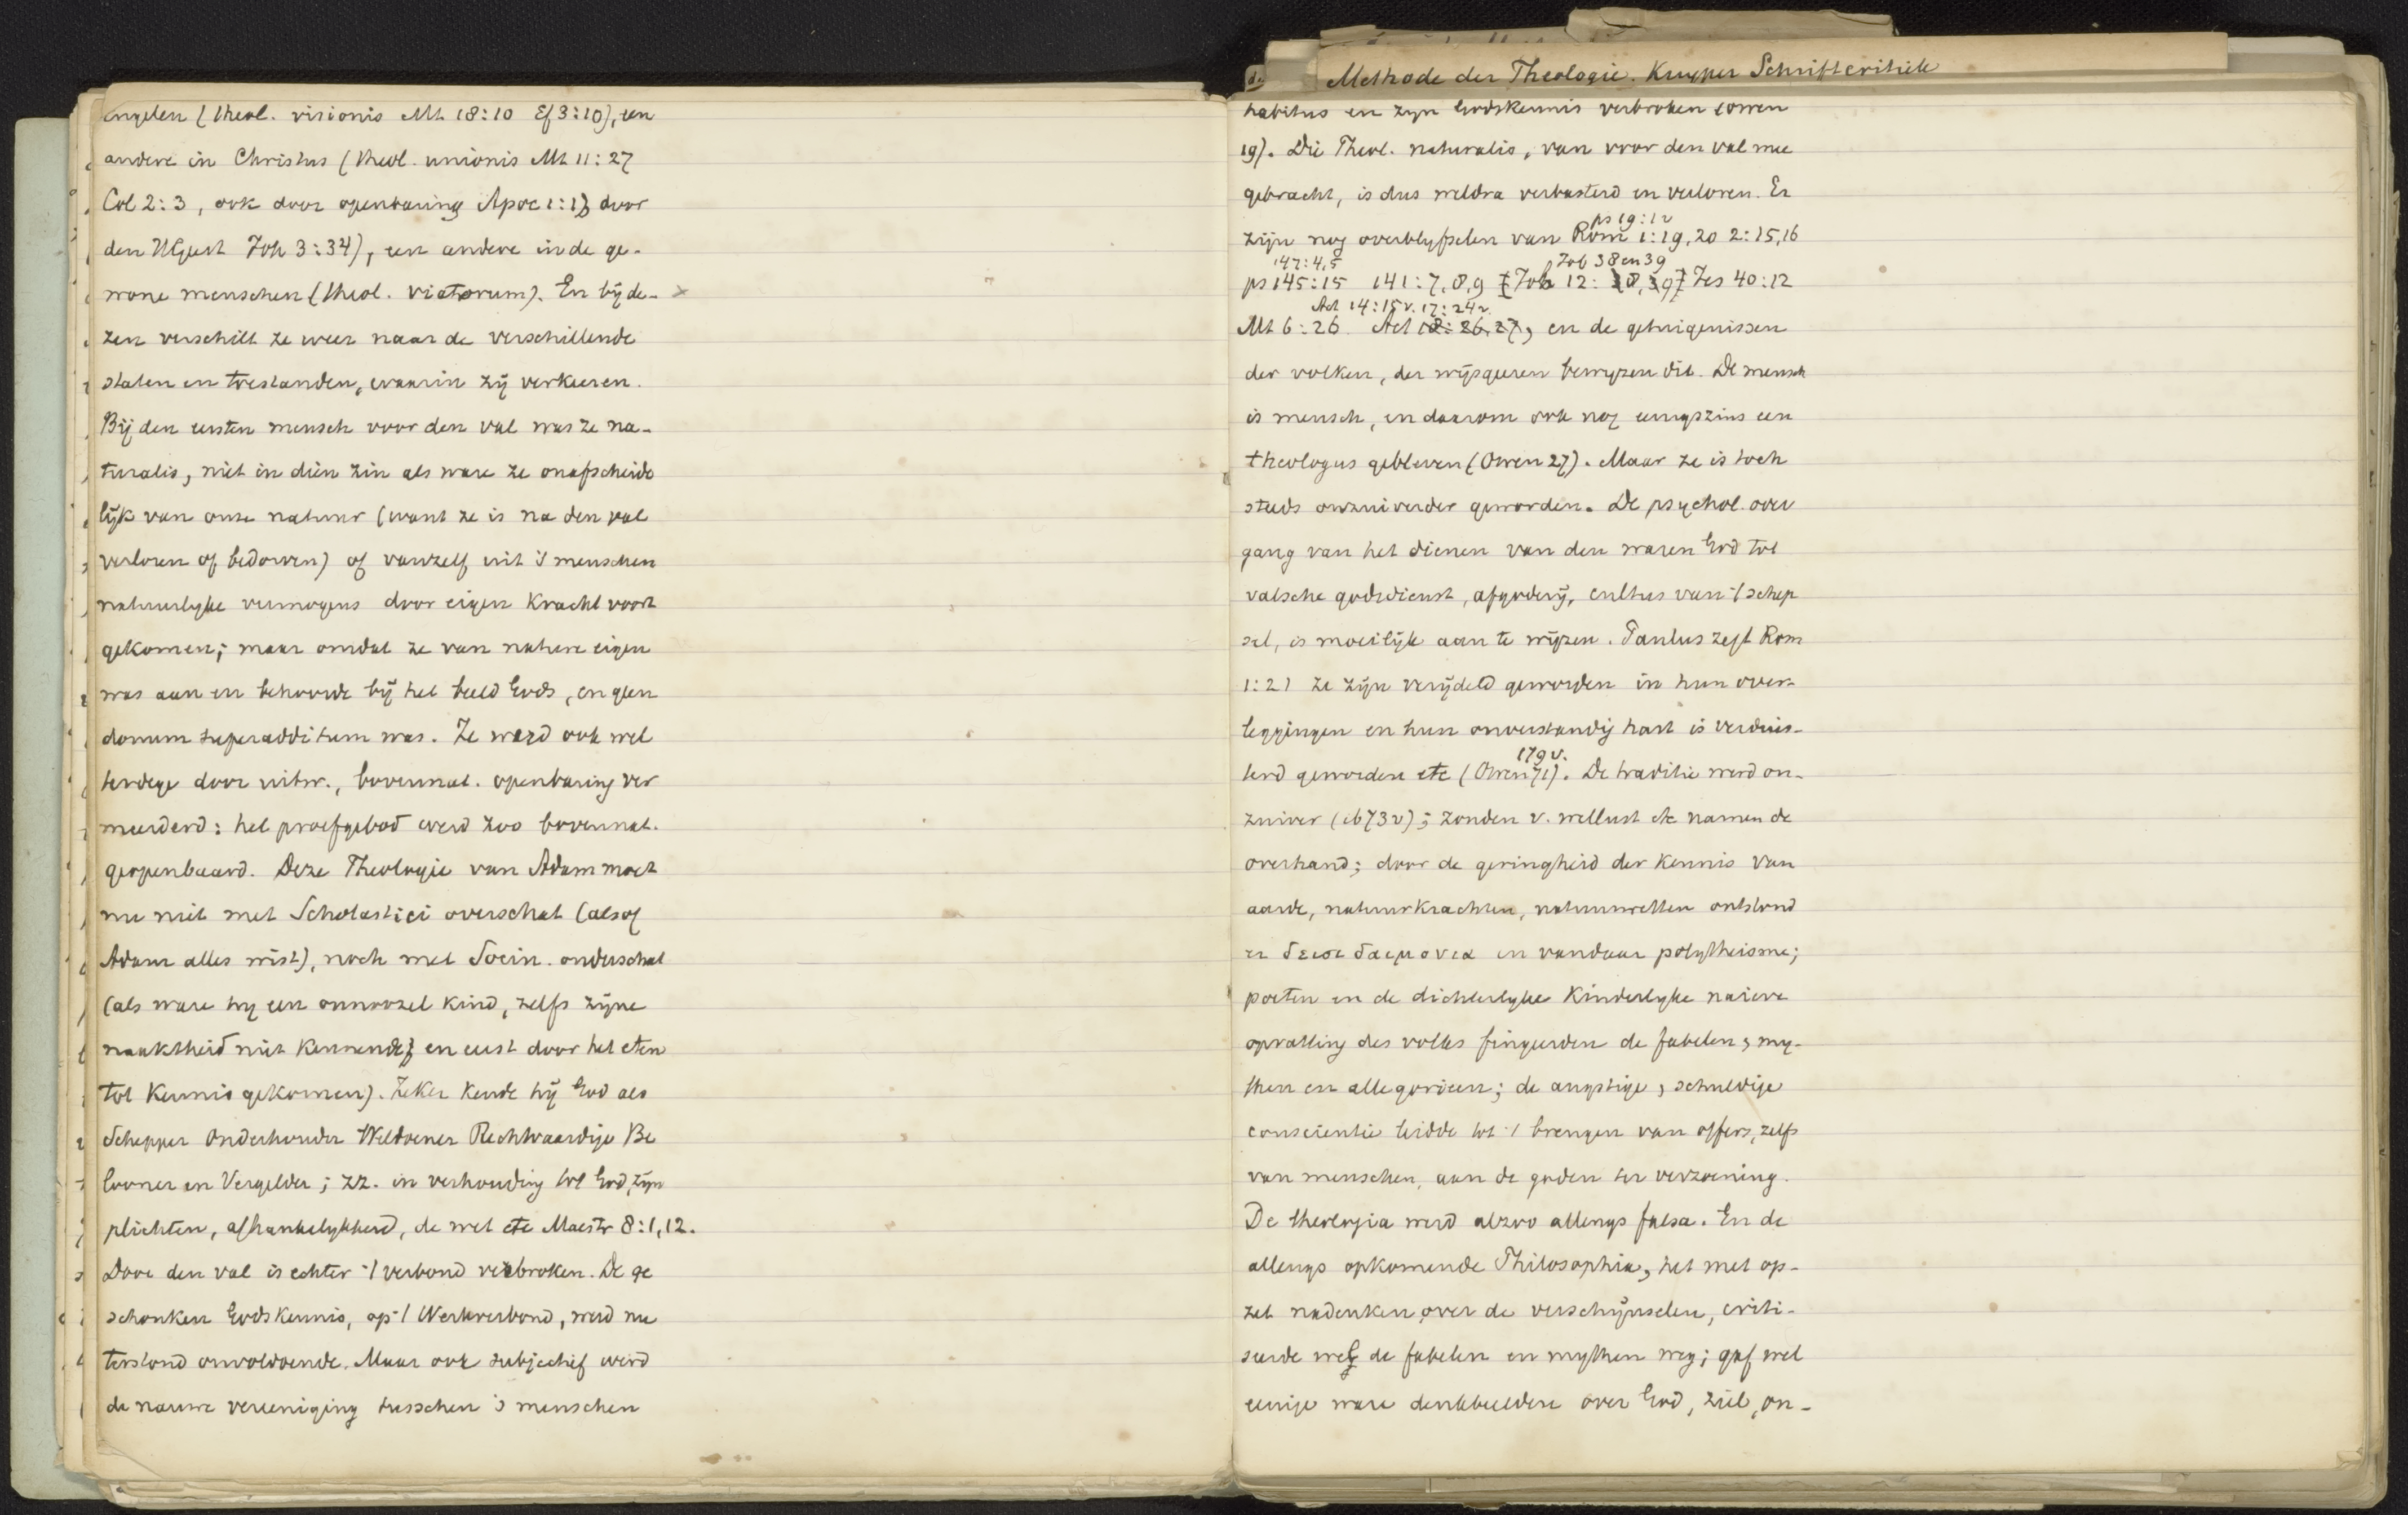 engelen (theol. visionis Mt 18:10 Ef 3:10), een
andere in Christus (theol. unionis Mt 11:27
Col 2:3, ook door openbaring Apoc 1:1) door
den HGeest Joh 3:34), een andere in de ge-
wone menschen (theol. viatorum). En bij de-
zen verschilt ze weer naar de verschillende
staten en toestanden, waarin zij verkeeren.
Bij den eersten mensch voor den val was ze na-
turalis, niet in dien zin als ware ze onafscheide
lijk van onze natuur (want ze is na den val
verloren of bedorven) of vanzelf uit 's menschen
natuurlyke vermogens door eigen kracht voort
gekomen; maar omdat ze van nature eigen
was aan en behoorde bij het beeld Gods, en geen
donum superadditum was. Ze werd ook wel
terdege door uitw., bovennat. openbaring ver
meerderd: het proefgebod werd zoo bovennat.
geopenbaard. Deze Theologie van Adam moet
nu niet met Scholastici overschat (alsof
Adam alles wist), noch met Socin. onderschat
(als ware hy een onnoozel kind, zelfs zijne
naaktheid niet kennende, en eerst door het eten
tot kennis gekomen). Zeker kende hij God als
Schepper Onderhouder Weldoener Rechtvaardige Be
looner en Vergelder; zz. in verhouding tot God, zijn
plichten, afhankelykheid, de wet etc Maestr 8:1,12.
Door den val is echter 't verbond verbroken. De ge
schonken Godskennis, op 't Werkverbond, werd nu
terstond onvoldoende. Maar ook subjectief werd
de nauwe vereeniging tusschen 's menschen
de Methode der Theologie. Kuyper Schriftcritiek
habitus en zyn Godskennis verbroken (Owen
19). Die Theol. naturalis, van voor den val mee
gebracht, is dus weldra verbasterd en verloren. Er
ps 19:1v
zijn nog overblyfselen van Rom 1:19,20 2:15,16
147:4,5 Job 38 en 39
ps 145:15 141:7,8,9 Job 12: Jes 40:12
Act 14:15v. 17:24v.
Mt 6:26 Act 18:26,27, en de getuigenissen
der volken, der wijsgeeren bewyzen dit. De mensch
is mensch, en daarom ook nog eenigszins een
theologus gebleven (Owen 27). Maar ze is toch
steeds onzuiverder geworden. De psychol. over
gang van het dienen van den waren God tot
valsche godsdienst, afgoderij, cultus van 't schep
sel, is moeilijk aan te wijzen. Paulus zegt Rom
1:21 ze zijn verijdeld geworden in hun over-
leggingen en hun onverstandig hart is verduis-
179v.
terd geworden etc (Owen 71). De traditie werd on-
zuiver (ib 73v); zonden v. wellust etc namen de
overhand; door de geringheid der kennis van
aarde, natuurkrachten, natuurwetten ontstond
er δεισιδαιμονια en vandaar polytheisme;
poeten en de dichterlyke kinderlyke naieve
opvatting des volks fingeerden de fabelen, my-
then en allegorieen; de angstige, schuldige
conscientie leidde tot 't brengen van offers, zelfs
van menschen, aan de goden ter verzoening.
De theologia werd alzoo allengs falsa. En de
allengs opkomende Philosophia, het met op-
zet nadenken over de verschijnselen, criti-
seerde wel de fabelen en mythen weg; gaf wel
eenige ware denkbeelden over God, ziel, on-